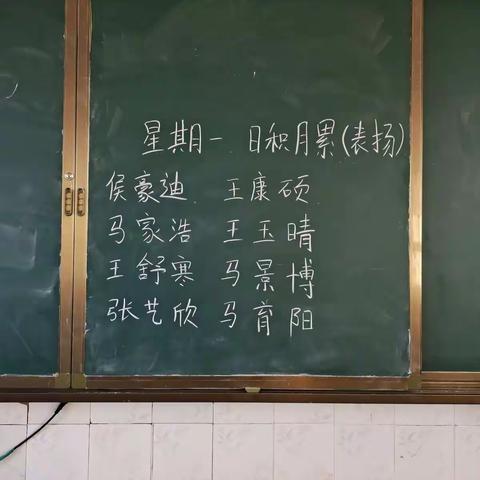 星期一 日积月累(表扬)
侯豪迪 王康硕
马家浩 王玉晴
王舒寒 马景博
张艺欣 马育阳